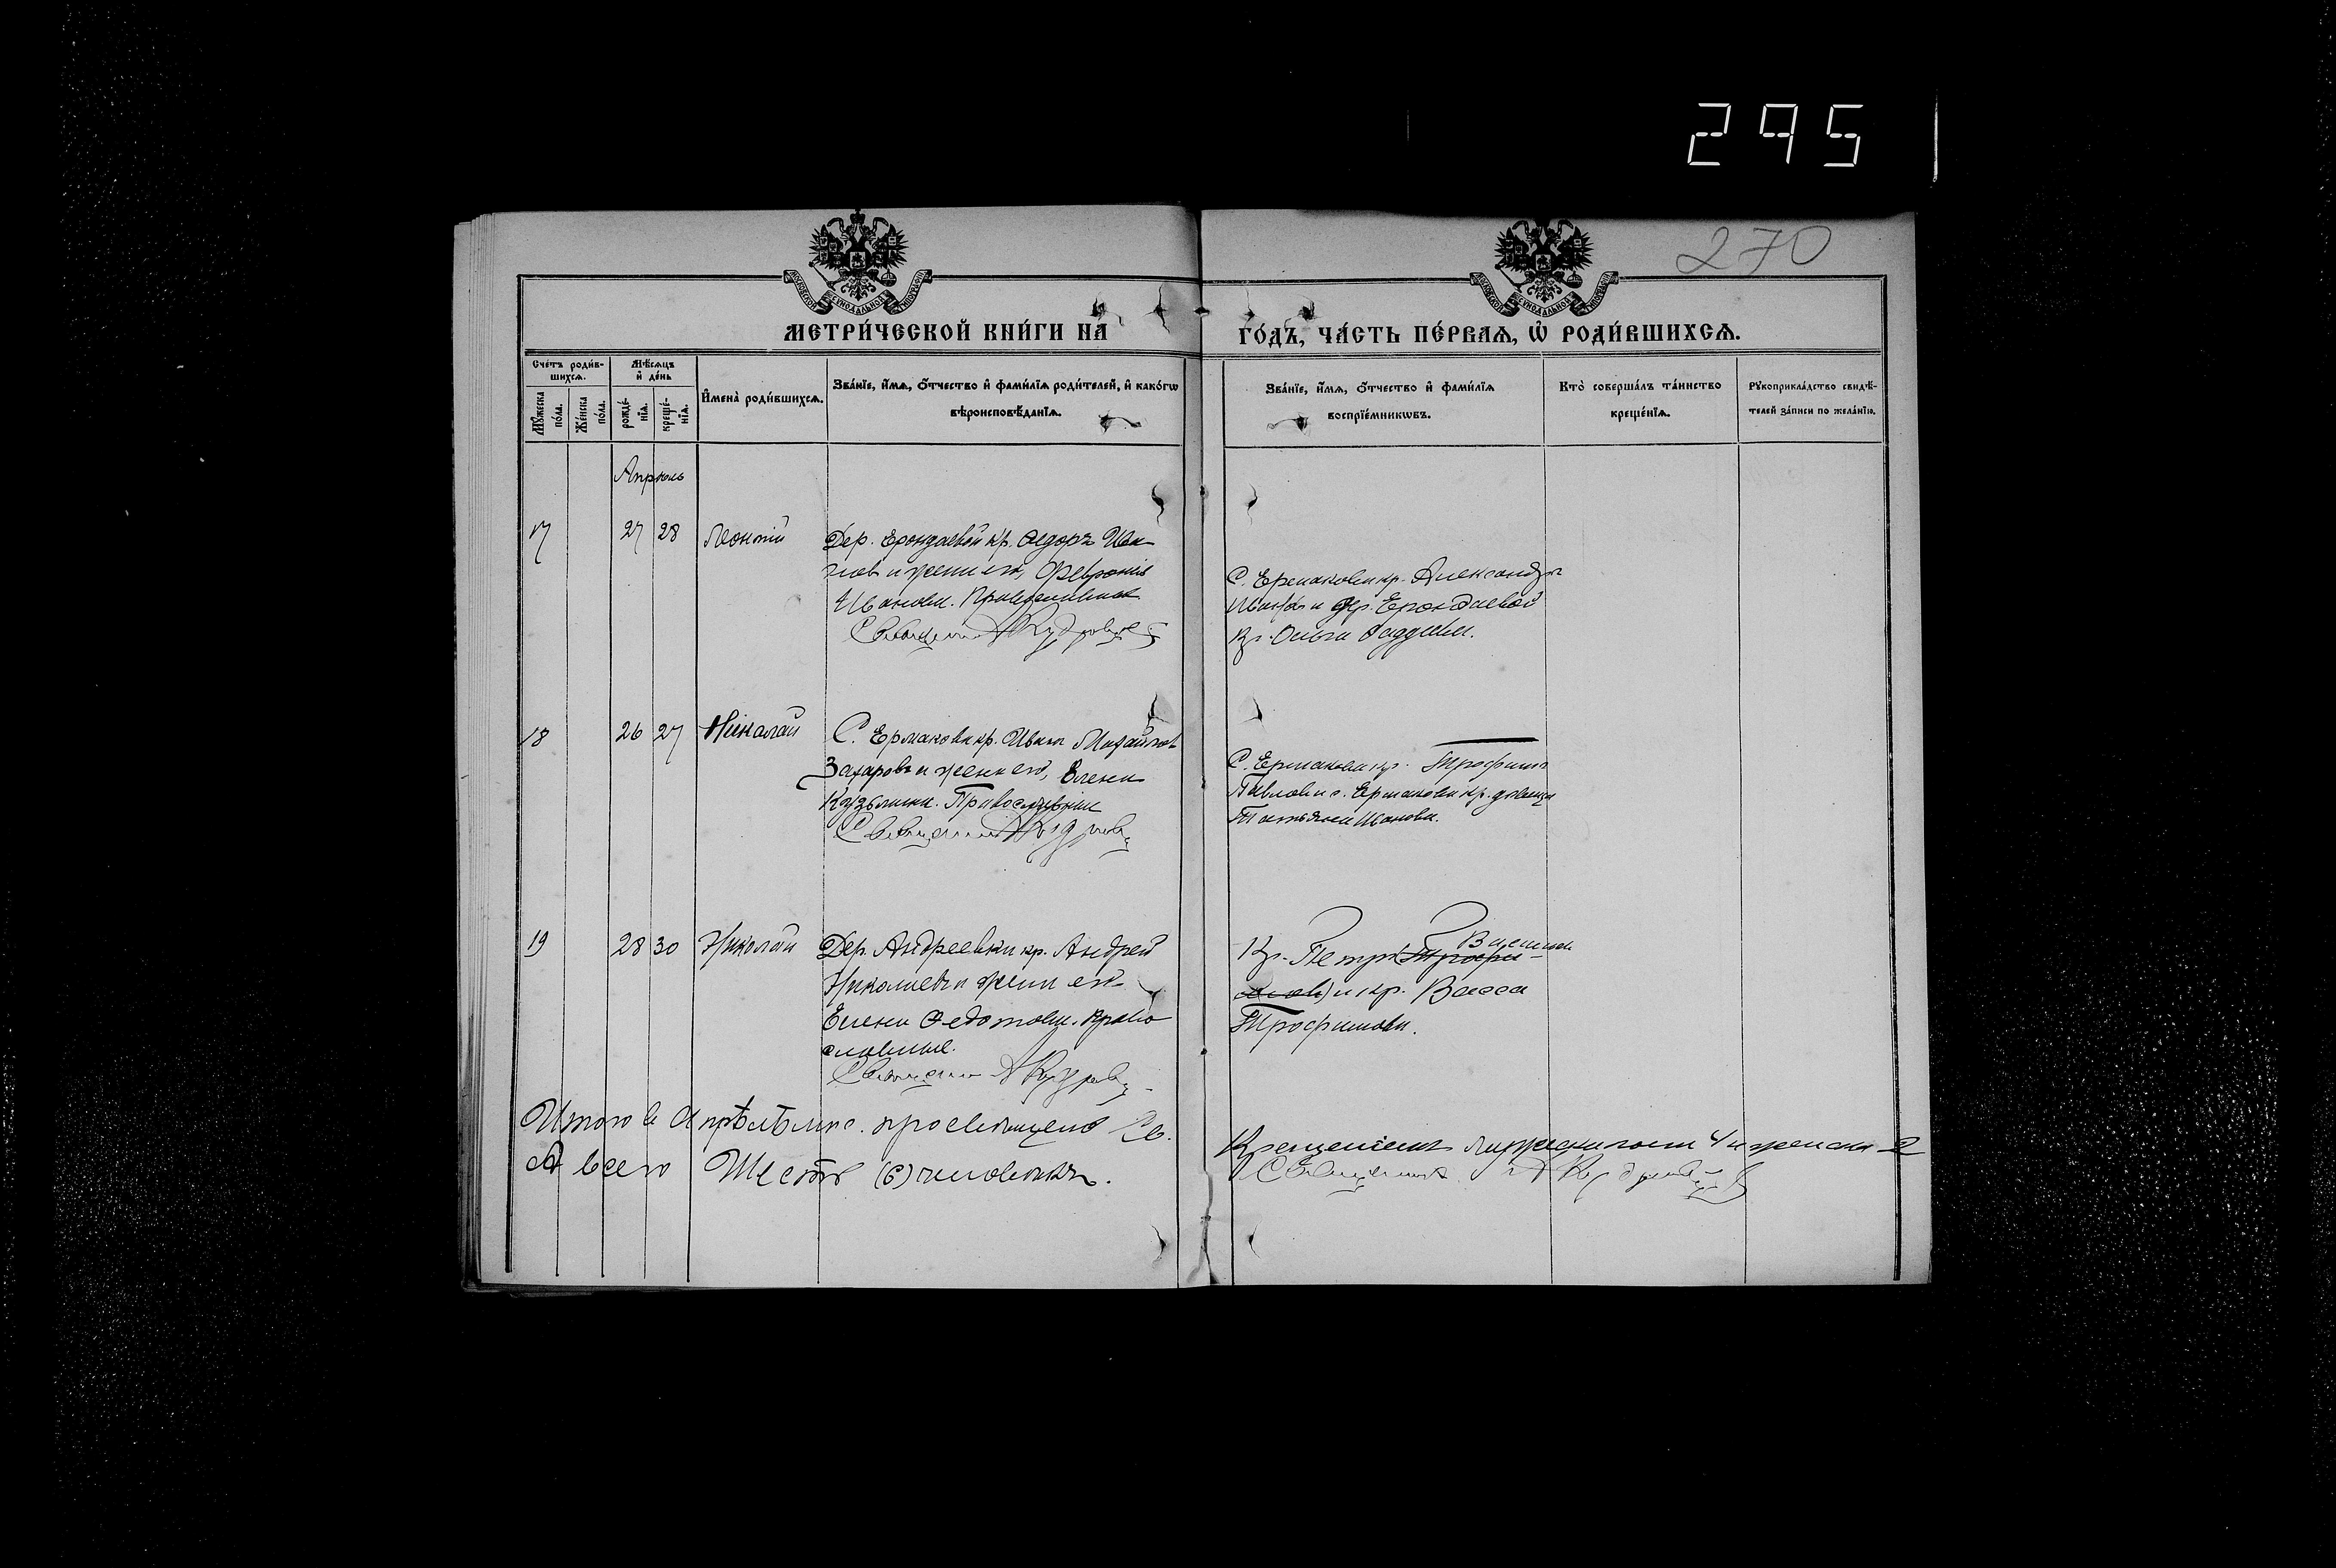 295
270
МЕТРИ́ЧЕСКОЙ КНИ́ГИ НА
ГО́ДЪ, ЧА́СТЬ ПЕ́РВАѦ, Ѽ РОДИ́ВШИХСѦ.
Сче́тъ роди́в-
шихсѧ.
Мꙋ́жеска по́ла.
Же́нска по́ла.
Мѣ́сѧцъ
и҆ де́нь
рожде́-
нїѧ.
креще́-
нїѧ.
И҆мена̀ роди́вшихсѧ.
Зва́нїе, и҆́мѧ, ѻ҆́тчество и҆ фами́лїѧ роди́телей, и҆ како́гѡ
вѣроисповѣ́данїѧ.
Зва́нїе, и҆́мѧ, ѻ҆́тчество и҆ фами́лїѧ
воспрїе́мникѡвъ.
Кто̀ соверша́лъ та́инство
креще́нїѧ.
Рꙋкоприкла́дство свидѣ́-
телей за́писи по жела́нїю.
Апрѣль
17 27 28 Леонтій
Дер. Ерондаевой кр. Ѳедоръ Ива-
новъ и жена его, Февронія
Иванова. Православные
Священникъ А Кудрявцев
С. Ермаковки кр. Александръ
Ивановъ и дер. Ерондаевой
кр. Ольга
18 26 27 Николай
С. Ермаковки кр. Иванъ Михайловъ
Захаровъ и жена его, Елена
Кузьмина. Православные
Священникъ А Кудрявц
С. Ермаковки кр. Трофимъ
Павловъ и с. Ермаковки кр. девица
Татьяна Иванова.
19 28 30 Николай
Дер. Андреевки кр. Андрей
Николаевъ и жена его
Елена Ѳедотова. Право
славные.
Священник А Кудрявц
Кр. Петръ Трофи-
мовъ) и кр. Васса
Трофимова.
Итого въ Апрѣлѣ мѣс. просвѣщено Св.
Крещеніемъ мужескаго пола 4 и женска 2
А всего Шесть (6) человѣкъ.
Священникъ А Кудрявцев